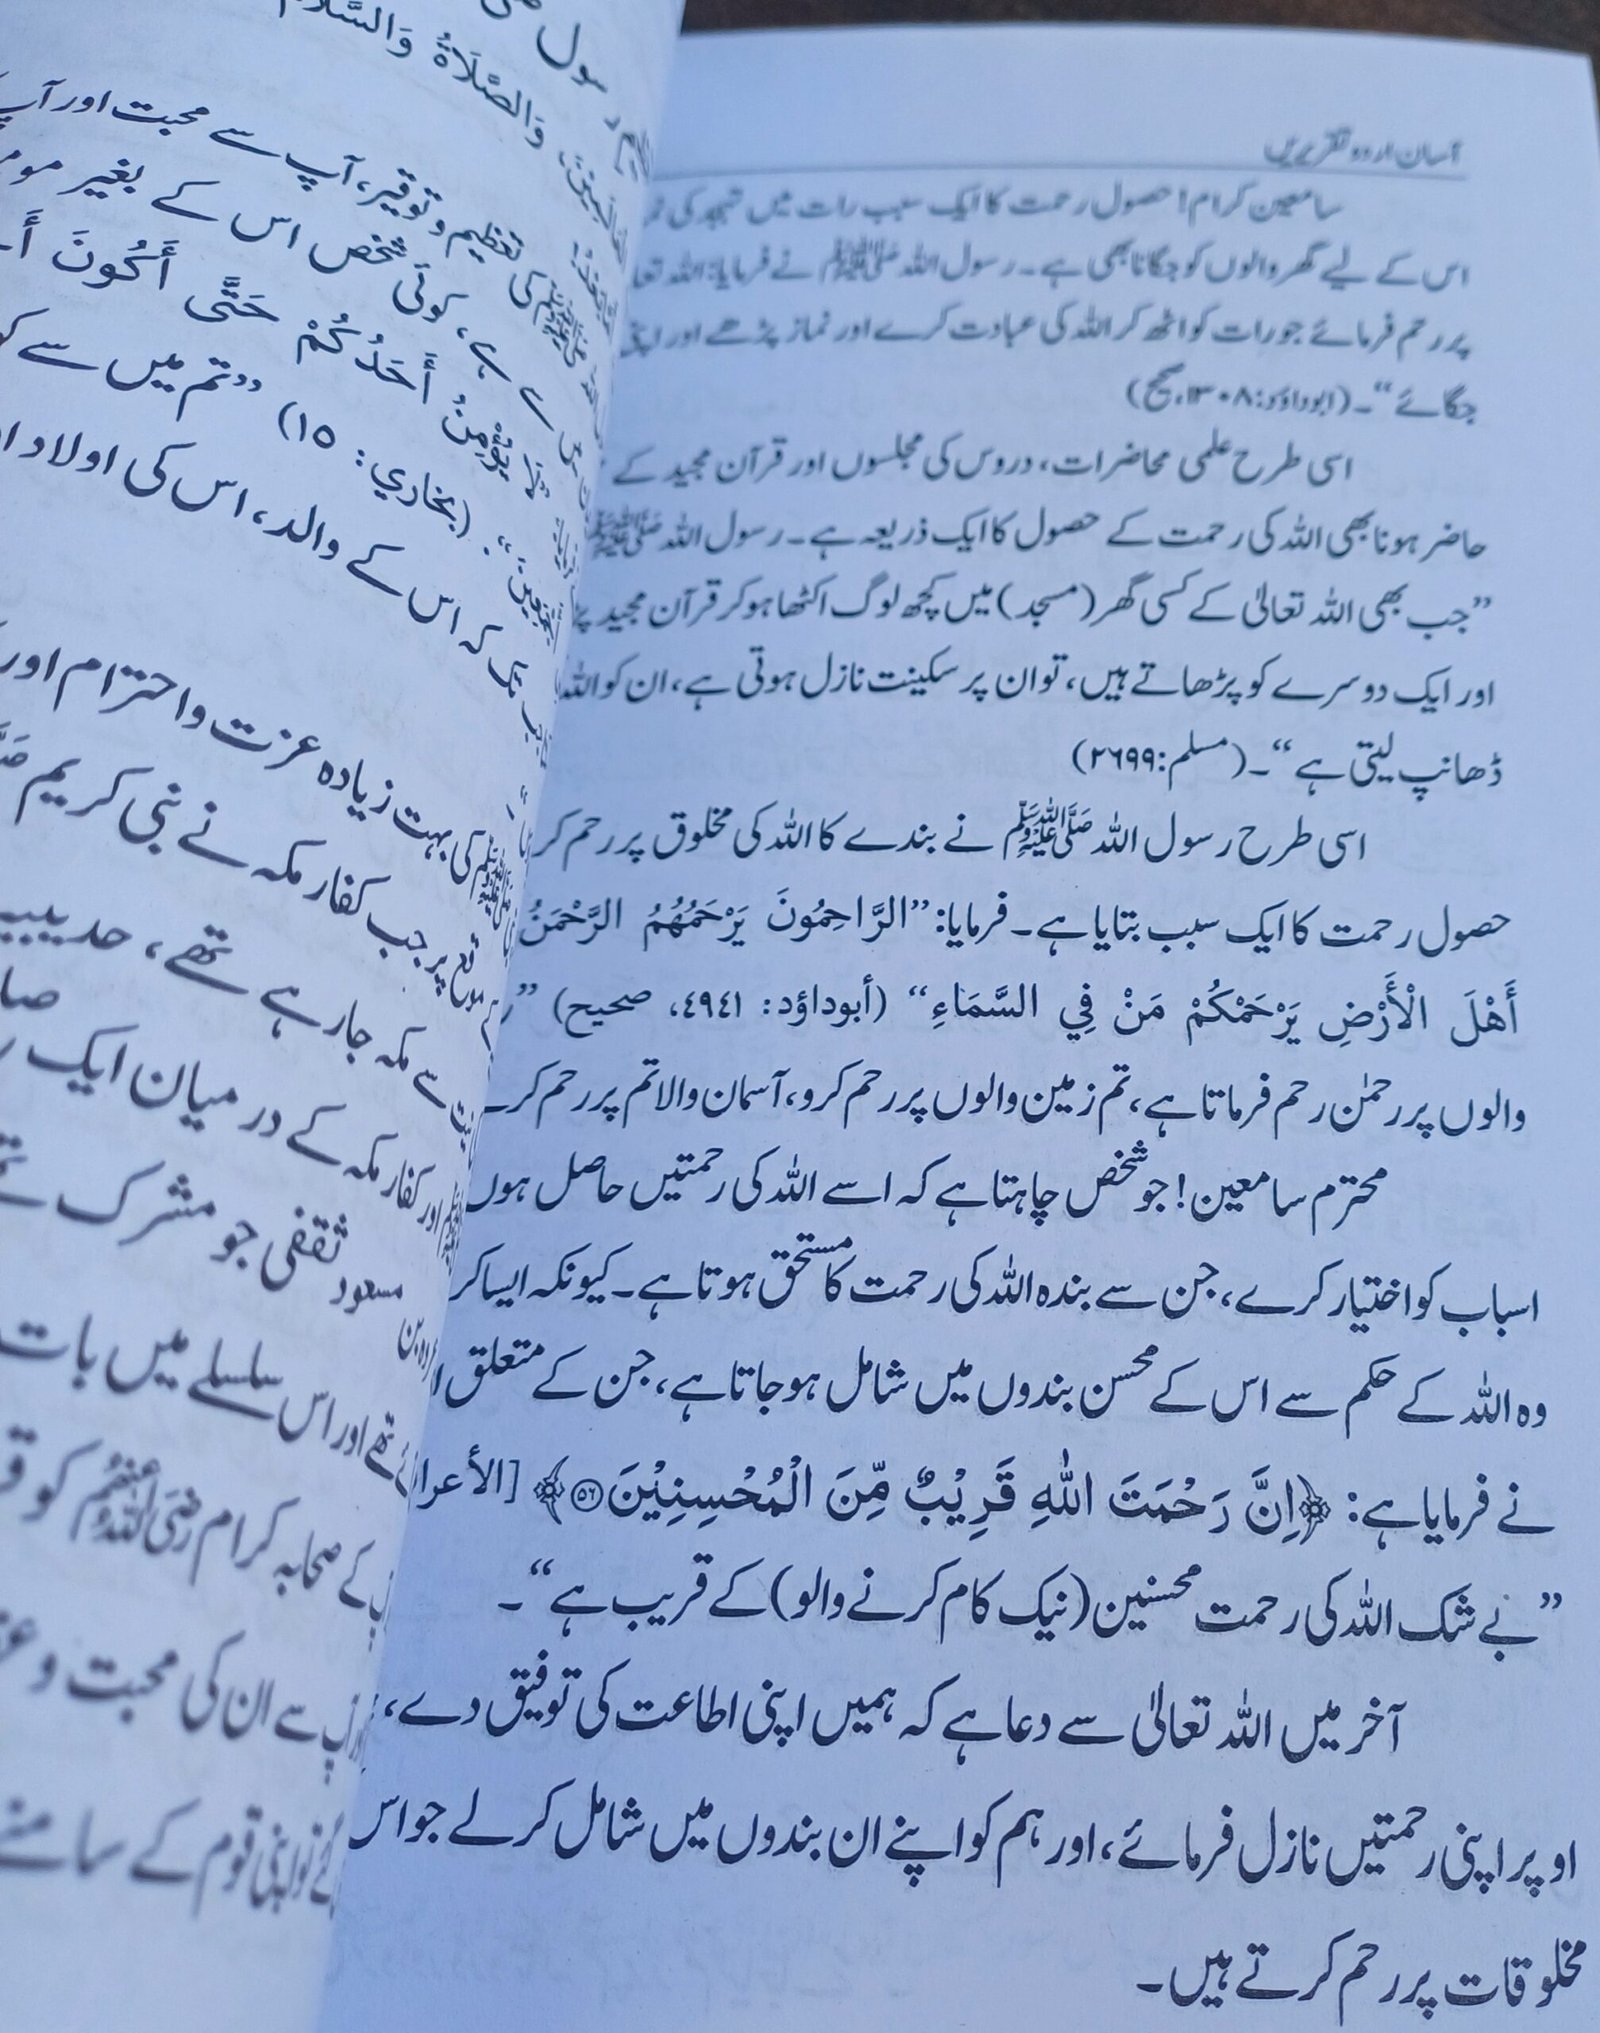 آسان اردو تقریریں
سامعین کرام! حصول رحمت کا ایک سبب رات میں تہجد کی
اس کے لیے گھر والوں کو جگانا بھی ہے۔ رسول اللہ ﷺ نے فرمایا: اللہ
پر رحم فرمائے جو رات کو اٹھ کر اللہ کی عبادت کرے اور نماز پڑھے اور اپنی
جگائے“۔ (ابوداؤد: ۱۳۰۸، صحیح)
اسی طرح علمی محاضرات، دروس کی مجلسوں اور قرآن مجید کے
حاضر ہونا بھی اللہ کی رحمت کے حصول کا ایک ذریعہ ہے۔ رسول اللہ ﷺ
”جب بھی اللہ تعالیٰ کے کسی گھر (مسجد) میں کچھ لوگ اکٹھا ہو کر قرآن مجید
اور ایک دوسرے کو پڑھاتے ہیں، تو ان پر سکینت نازل ہوتی ہے، ان کو اللہ
ڈھانپ لیتی ہے“۔ (مسلم: ۲۶۹۹)
اسی طرح رسول اللہ ﷺ نے بندے کا اللہ کی مخلوق پر رحم کر
حصول رحمت کا ایک سبب بتایا ہے۔ فرمایا: ”الرَّاحِمُونَ يَرْحَمُهُمُ الرَّحْمَنُ
أَهْلَ الْأَرْضِ يَرْحَمْكُمْ مَنْ فِي السَّمَاءِ“ (أبوداؤد: ٤٩٤١، صحيح) ”
والوں پر رحمٰن رحم فرماتا ہے، تم زمین والوں پر رحم کرو، آسمان والا تم پر رحم کرے
محترم سامعین! جو شخص چاہتا ہے کہ اسے اللہ کی رحمتیں حاصل ہوں
اسباب کو اختیار کرے، جن سے بندہ اللہ کی رحمت کا مستحق ہوتا ہے۔ کیونکہ ایسا کر
وہ اللہ کے حکم سے اس کے محسن بندوں میں شامل ہو جاتا ہے، جن کے متعلق
نے فرمایا ہے: ﴿اِنَّ رَحْمَتَ اللّٰهِ قَرِيْبٌ مِّنَ الْمُحْسِنِيْنَ۝۵۶﴾ [الأعرا
”بے شک اللہ کی رحمت محسنین (نیک کام کرنے والو) کے قریب ہے“۔
آخر میں اللہ تعالیٰ سے دعا ہے کہ ہمیں اپنی اطاعت کی توفیق دے،
اوپر اپنی رحمتیں نازل فرمائے، اور ہم کو اپنے ان بندوں میں شامل کر لے جو اس
مخلوقات پر رحم کرتے ہیں۔
رسول
وَالصَّلَاةُ وَالسَّلَام
کی تعظیم و توقیر، آپ سے محبت اور آپ
ہے، کوئی شخص اس کے بغیر
لَا يُؤْمِنُ أَحَدُكُمْ حَتَّى أَكُونَ
أَجْمَعِينَ“. (بخاري: ١٥) ”تم میں سے
تک کہ اس کے والد، اس کی اولاد
کی بہت زیادہ عزت و احترام اور
موقع پر جب کفار مکہ نے نبی کریم
سے مکہ جا رہے تھے، حدیبیہ
اور کفار مکہ کے درمیان ایک
مسعود ثقفی جو مشرک
تھے اور اس سلسلے میں بات
کے صحابہ کرام رضی اللہ عنہم کو
سے ان کی محبت و
تو اپنی قوم کے سامنے